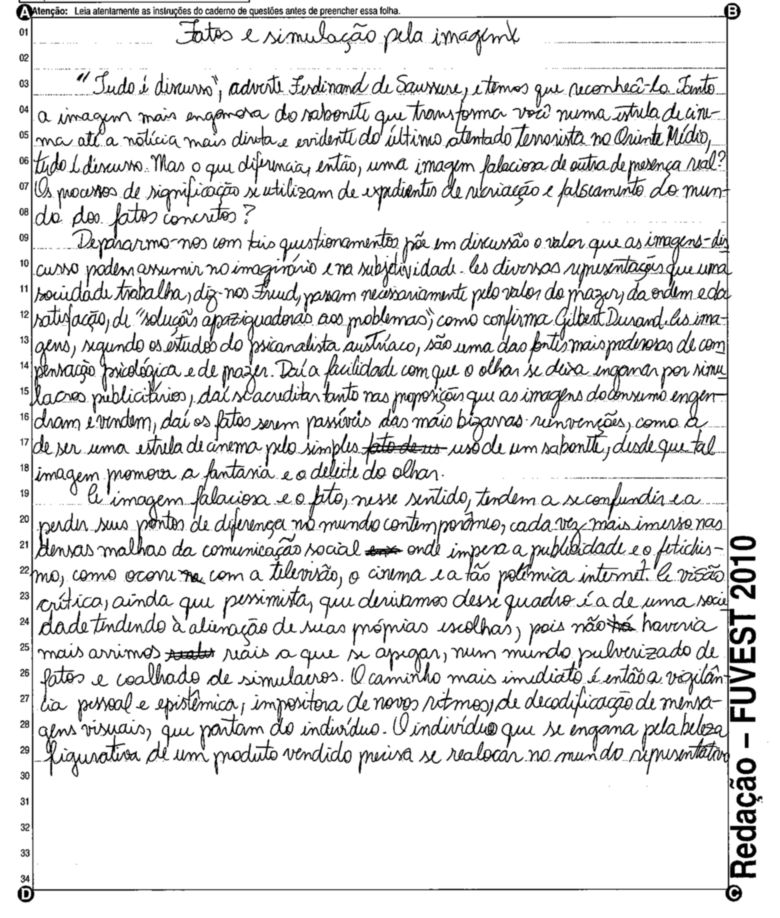 Atenção: Leia atentamente as instruções do caderno de questões antes de preencher essa folha.
A
B
01 Fatos e simulação pela imagem
02
03 "Tudo é discurso", adverte Ferdinand de Saussure, e temos que reconhecê-lo. Tanto
04 a imagem mais enganosa do sabonete que transforma você numa estrela de cine-
05 ma até a notícia mais direta e evidente do último atentado terrorista no Oriente Médio,
06 tudo é discurso. Mas o que diferencia, então, uma imagem falaciosa de outra de presença real?
07 Os processos de significação se utilizam de expedientes de recriação e falseamento do mun-
08 do dos fatos concretos?
09 Depararmo-nos com tais questionamentos põe em discussão o valor que as imagens-dis
10 curso podem assumir no imaginário e na subjetividade. As diversas representações que uma
11 sociedade trabalha, diz-nos Freud, passam necessariamente pelo valor do prazer, da ordem e da
12 satisfação, de "soluções apaziguadoras aos problemas", como confirma Gilbert Durand. As ima-
13 gens, segundo os estudos do psicanalista austríaco, são uma das fontes mais poderosas de com
14 pensação psicológica e de prazer. Daí a facilidade com que o olhar se deixa enganar por simu
15 lacros publicitários, daí se acreditar tanto nas proposições que as imagens do consumo engen-
16 dram e vendem, daí os fatos serem passíveis das mais bizarras reinvenções, como a
17 de ser uma estrela de cinema pelo simples uso de um sabonete, desde que tal
18 imagem promova a fantasia e o deleite do olhar.
19 A imagem falaciosa e o fato, nesse sentido, tendem a se confundir e a
20 perder seus pontos de diferença no mundo contemporâneo, cada vez mais imerso nas
21 densas malhas da comunicação social onde impera a publicidade e o fetichis-
22 mo, como ocorre com a televisão, o cinema e a tão polêmica internet. A visão
23 crítica, ainda que pessimista, que derivamos desse quadro é a de uma socie
24 dade tendendo à alienação de suas próprias escolhas, pois não haveria
25 mais arrimos reais a que se apegar, num mundo pulverizado de
26 fatos e coalhado de simulacros. O caminho mais imediato é então a vigilân-
27 cia pessoal e epistêmica, impositora de novos ritmos, de decodificação de mensa-
28 gens visuais, que partam do indivíduo. O indivíduo que se engana pela beleza
29 figurativa de um produto vendido precisa se realocar no mundo representativo
30
31
32
33
34
D
C
Redação – FUVEST 2010